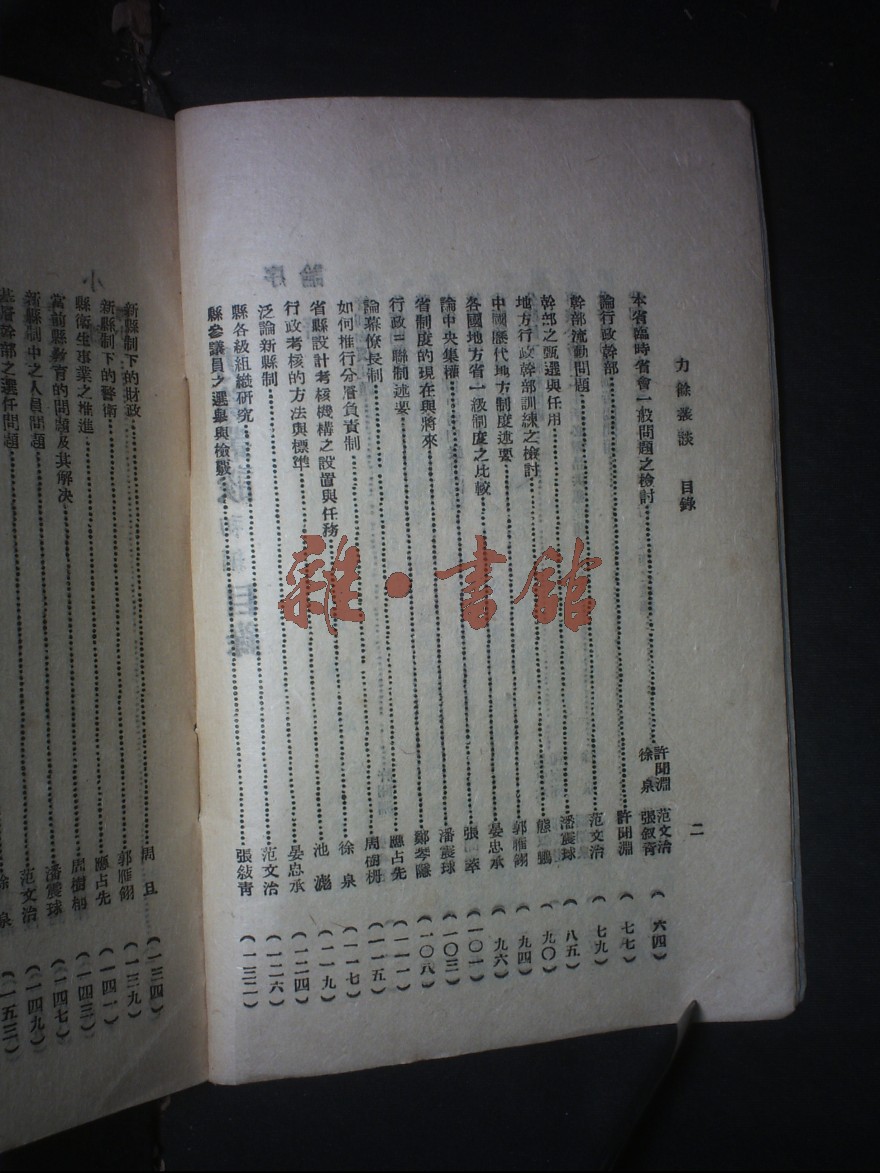 力餘叢談 目錄
二
本省臨時省會一般問題之檢討 許聞淵 范文治 徐泉 張敍青 (六四)
論行政幹部 許聞淵 (七七)
幹部流動問題 范文治 (七九)
幹部之甄選與任用 潘震球 (八五)
地方行政幹部訓練之檢討 熊鵬 (九〇)
中國歷代地方制度述要 郭雁翎 (九四)
各國地方省一級制度之比較 晏忠承 (九六)
論中央集權 張萃 (一〇一)
省制度的現在與將來 潘震球 (一〇三)
行政三聯制述要 鄭琴隱 (一〇八)
論幕僚長制 應占先 (一一一)
如何推行分層負責制 周樹枬 (一一五)
省縣設計考核機構之設置與任務 徐泉 (一一七)
行政考核的方法與標準 池滮 (一一九)
泛論新縣制 晏忠承 (一二四)
縣各級組織研究 范文治 (一二六)
縣參議員之選舉與檢覈 張敍青 (一三二)
新縣制下的財政 周旦 (一三四)
新縣制下的警衛 郭雁翎 (一三九)
縣衛生事業之推進 應占先 (一四一)
當前縣教育的問題及其解決 周樹枬 (一四三)
新縣制中之人員問題 潘震球 (一四七)
基層幹部之選任問題 范文治 (一四九)
小
徐泉 (一五三)
雜·書館